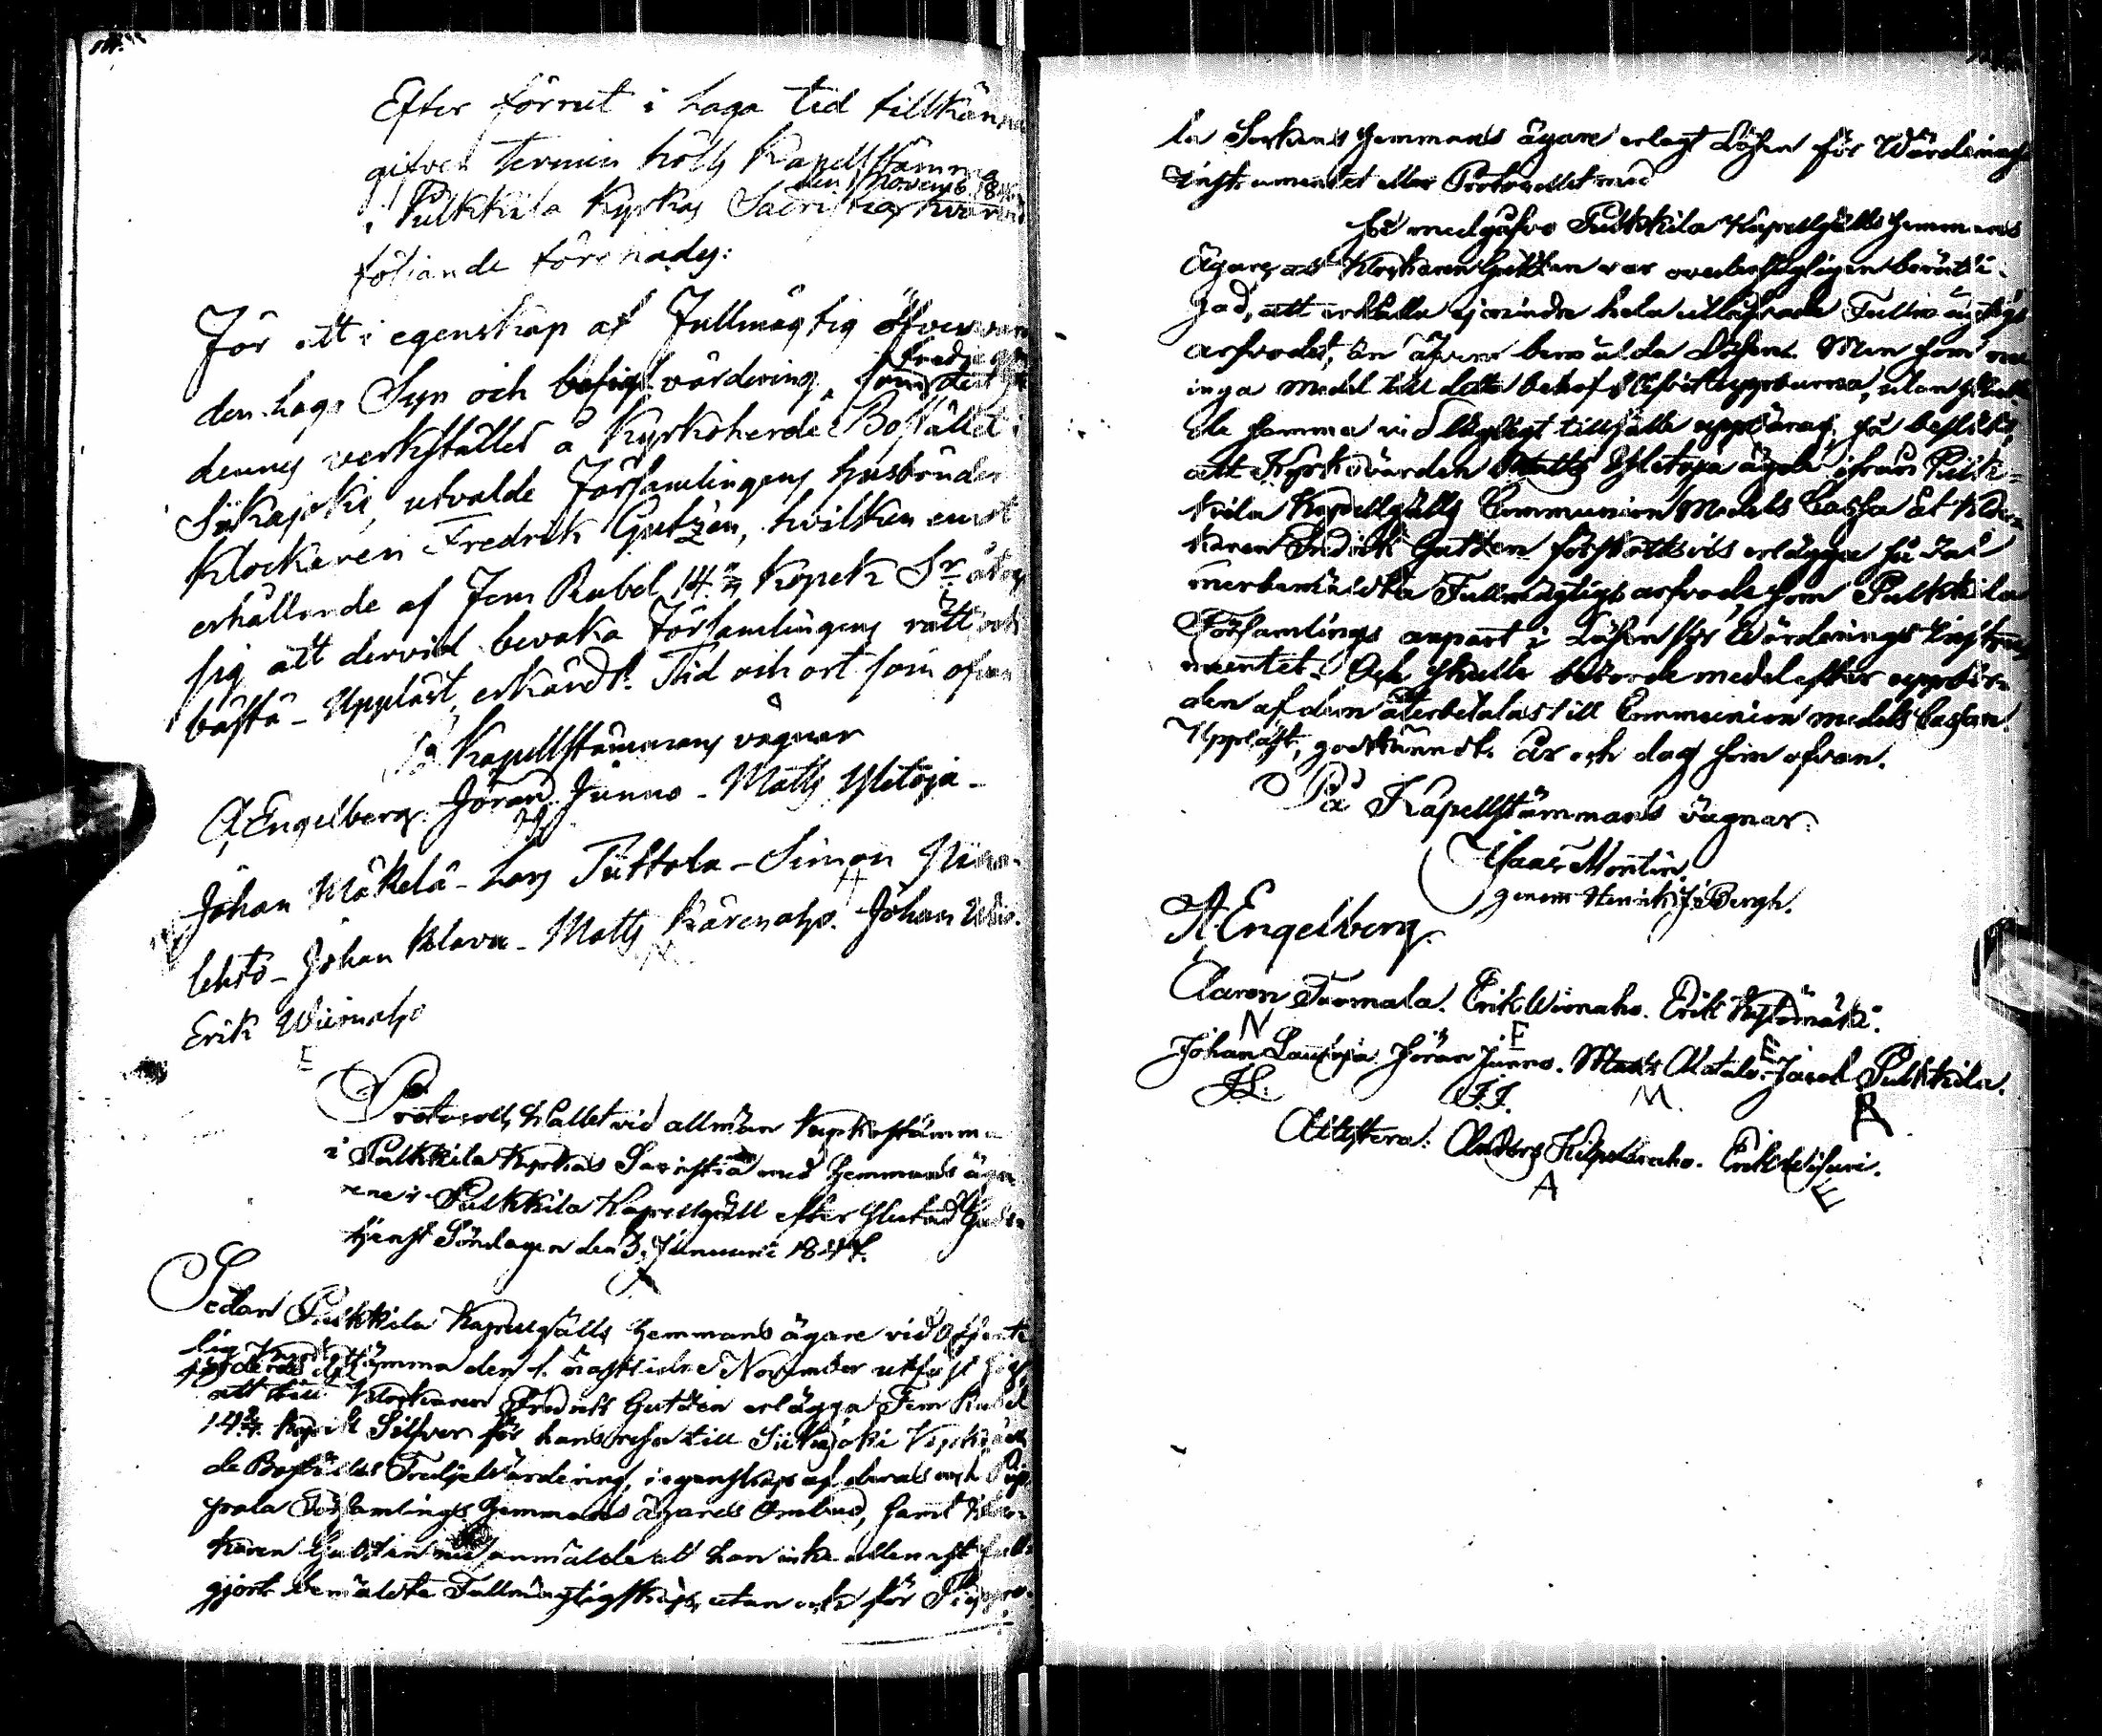 Efter förrut i laga tid tillkänna
gifven termin hölts Kapellstämma
den 1 Novemb. 184
i Pulkkila Kyrkas Sacristia hvarvid
följande förehades:
För att i egenskap af Fullmägtig öfvervara
den laga Syn och värdering, som
dennes verkställes å Kyrkoherde Bostället i
Siikajoki, utvalde Församlingens husbönder
Klockaren Fredrik Gutzén, hvilken emot
erhållande af Fem Rubel 14 2/7 Kopek Sr åtog
sig att dervid bevaka Församlingens rätt och
bästa - Uppläst, erkändt. Tid och ort som ofvan
På Kapellstämmans vägnar
A. Engelberg. Jöran Junno - Matts Yletoja -
Johan Mäkelä - Lars Tuttola - Simon
lehto - Johan - Matts Kärenaho. Johan
Erik Wiirnaho
E
Protocoll, hållet vid allmän Kyrkostämma
i Pulkkila Kyrkas Sacristia med Hemmans äga
rene i Pulkkila Kapellgäll efter slutad Guds
tjenst Söndagen den 3. Januarii 1847.
Sedan Pulkkila Kapellgälls Hemmans ägare vid offent
lig stämma den 1. nästvikne November utfäst sig,
att till Klockaren Fredrik Gutzén erlägga Fem Rubel
14 2/7 Kopek Silfver för hans resa till Siikajoki Kyrkoher
de Boställes Tredje Värdering, i egenskap af deras och Pip
pola Församlings Hemmans ägares Ombud, samt Kloc
karen Gutzén anmälde att han icke allenast full
gjort bemäldte Fullmägtigskap, utan ock för Pippo
la Sockens Hemmans ägare erlagt Lösen för Wärderings
Instrumentet eller Protocollet med
Så medgåfvo Pulkkila Kapellgälls Hemmans
Ägare, att Klockaren Gutzén var ovedersägligen berätti
gad, att erhålla ej mindre hela utlofvade Fullmägtigs
arfvodet, än äfven bemälda Lösen. Men som
inga medel till detta behof blifvit uppburna, utan skul
le samma vid lägligt tillfälle uppbäras, så beslöts,
att Kyrkovärden Matts Yletoja ägde ifrån Pulk=
kila Kapellgälls Communion Medels Cassa åt Kloc=
karen Fredrik Gutzén förskottsvis erlägga så väl
merbemäldta Fullmägtigs arfvode, som Pulkkila
Församlings anpart i Lösen för Wärderings Instru
mentet. Och skulle berörde medel efter uppbör=
den af dem återbetalas till Communion medels Cassan.
Uppläst, godkändt. År och dag som ofvan.
På Kapellstämmans vägnar:
Isaac Montin
genom Henrik J. Bergh.
A Engelberg.
Aaron Tuomala. Erik Wirnaho. Erik
N E E
Johan Lautoja. Jöran Junno. Matts Alatalo. Jacob Pulkkila.
J.L. J.J. M. R
Anders Kilpelänaho. Erik
A E